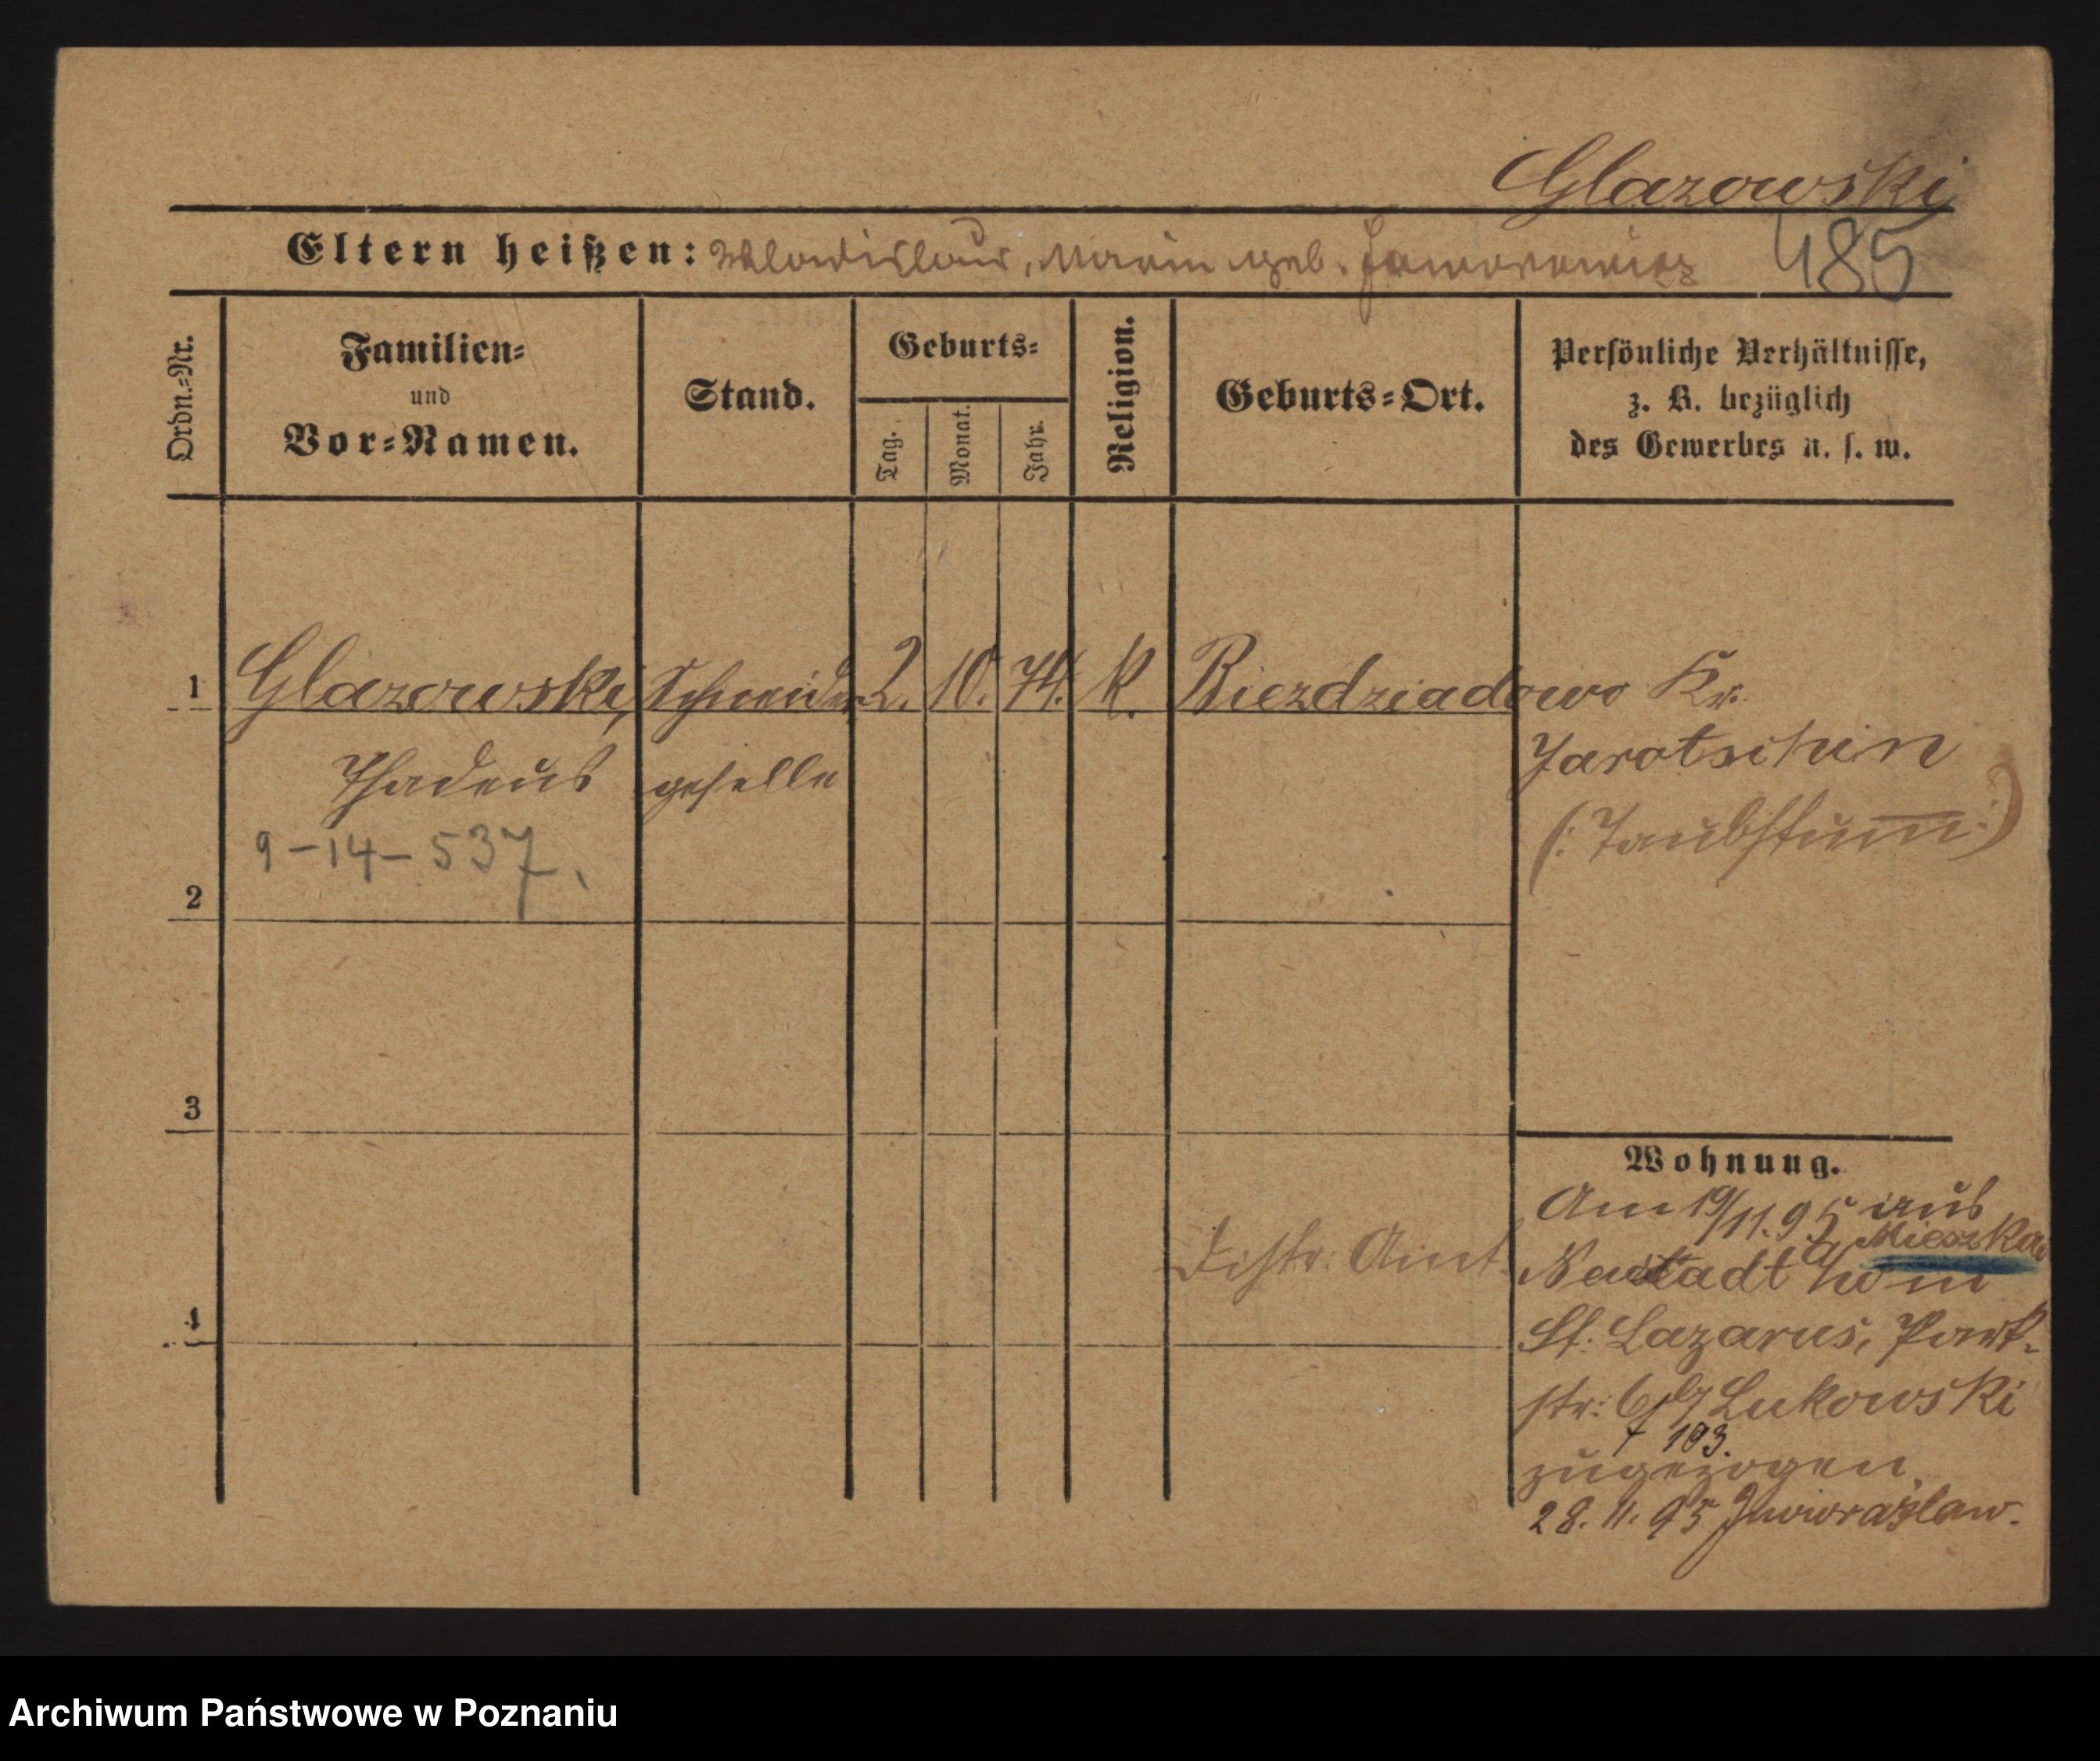 Glazowski
Eltern heißen: Wladislaus, Maria geb. 485
Ordn.-Nr.
Familien-
und
Vor-Namen.
Stand.
Geburts-
Tag.
Monat.
Jahr.
Religion.
Geburts-Ort.
Persönliche Verhältnisse,
z. B. bezüglich
des Gewerbes u. s. w.
1 Glazowski, Schneider 2. 10. 74. K. Biezdziadowo Kr.
Thadeus geselle Jarotschin
(: Taubstumm :)
9-14-537.
2
3
Wohnung.
Am 19/11. 95 aus
Mieszkow
Distr: Amt. Neustadt a/W in
4
St. Lazarus, Park-
str: Lukowski
103.
zugezogen.
28. 11. 95
Archiwum Państwowe w Poznaniu